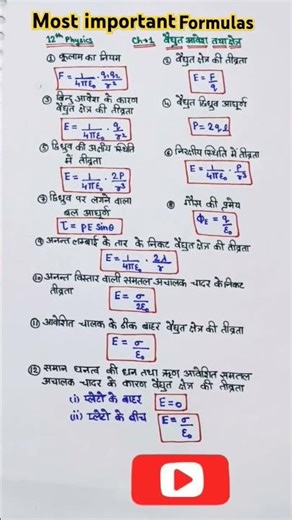 Most important Formulas
12th Physics Ch→1 वैधुत आवेश तथा क्षेत्र
① कूलाम का नियम
F = 1/4πε₀ · q₁q₂/r²
② वैधुत क्षेत्र की तीव्रता
E = F/q
③ बिन्दु आवेश के कारण
वैधुत क्षेत्र की तीव्रता
E = 1/4πε₀ · q/r²
④ वैधुत द्विध्रुव आघूर्ण
P = 2ql
⑤ द्विध्रुव की अक्षीय स्थिति
में तीव्रता
E = 1/4πε₀ · 2P/r³
⑥ निरक्षीय स्थिति में तीव्रता
E = 1/4πε₀ · P/r³
⑦ द्विध्रुव पर लगने वाला
बल आघूर्ण
τ = PE sinθ
⑧ गॉस की प्रमेय
Φ_E = q/ε₀
⑨ अनन्त लम्बाई के तार के निकट वैधुत क्षेत्र की तीव्रता
E = 1/4πε₀ · 2λ/r
⑩ अनन्त विस्तार वाली समतल अचालक चादर के निकट
तीव्रता
E = σ/2ε₀
⑪ आवेशित चालक के ठीक बाहर वैधुत क्षेत्र की तीव्रता
E = σ/ε₀
⑫ समान घनत्व की धन तथा ऋण आवेशित समतल
अचालक चादर के कारण वैधुत क्षेत्र की तीव्रता
(i) प्लेटो के बाहर E=0
(ii) प्लेटो के बीच E = σ/ε₀